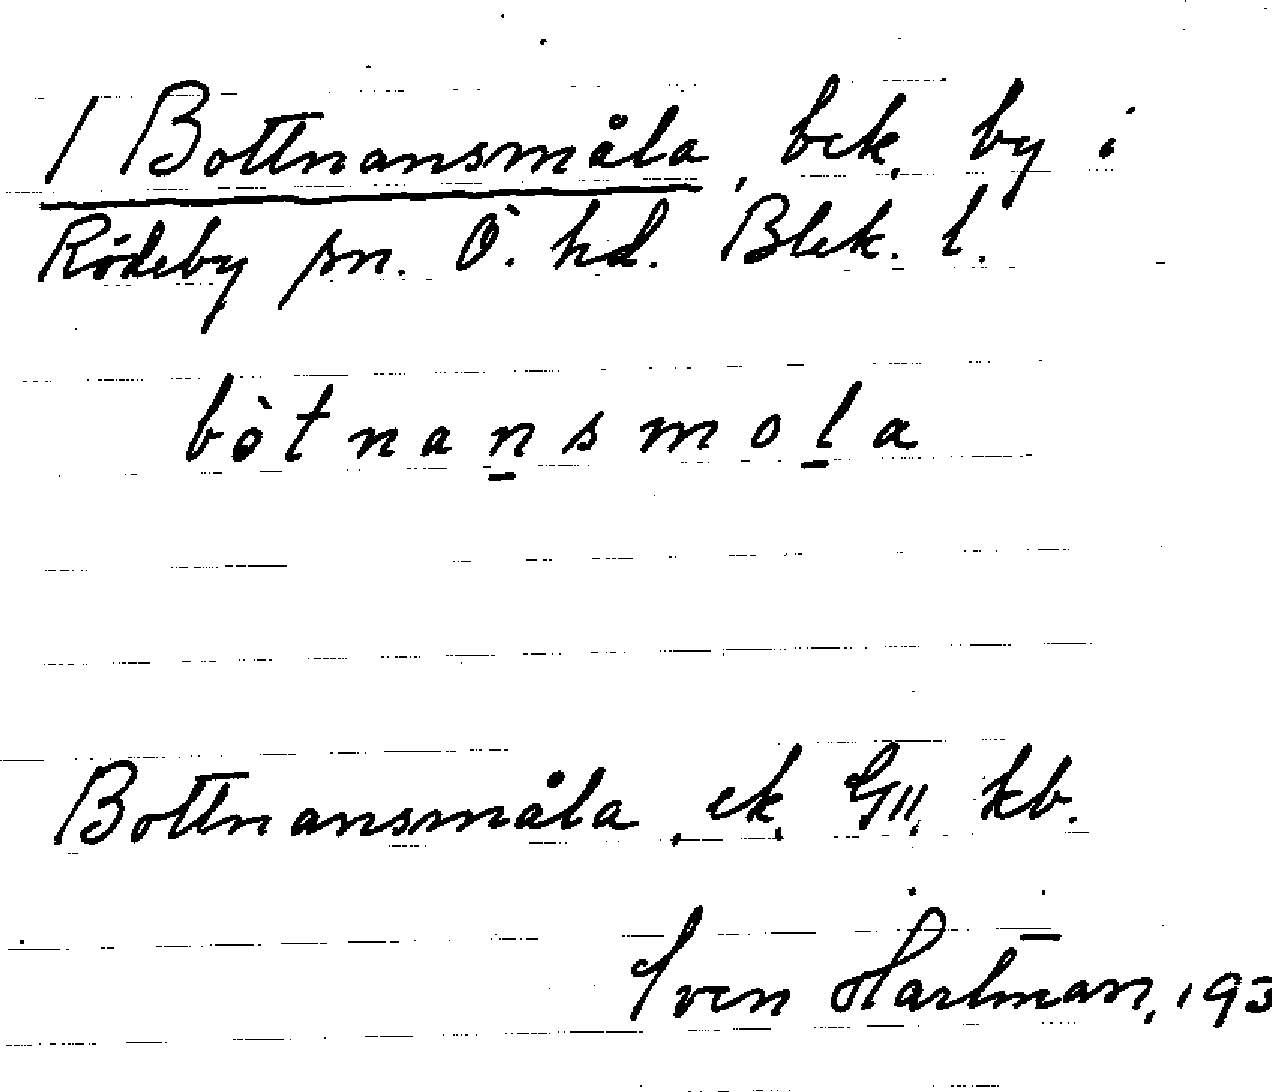 / Bottnansmåla, bek. by i
Rödeby sn. Ö. hd. Blek. l.
bòtnansmola
Bottnansmåla, ek. GII, kb.
Sven Hartman, 193